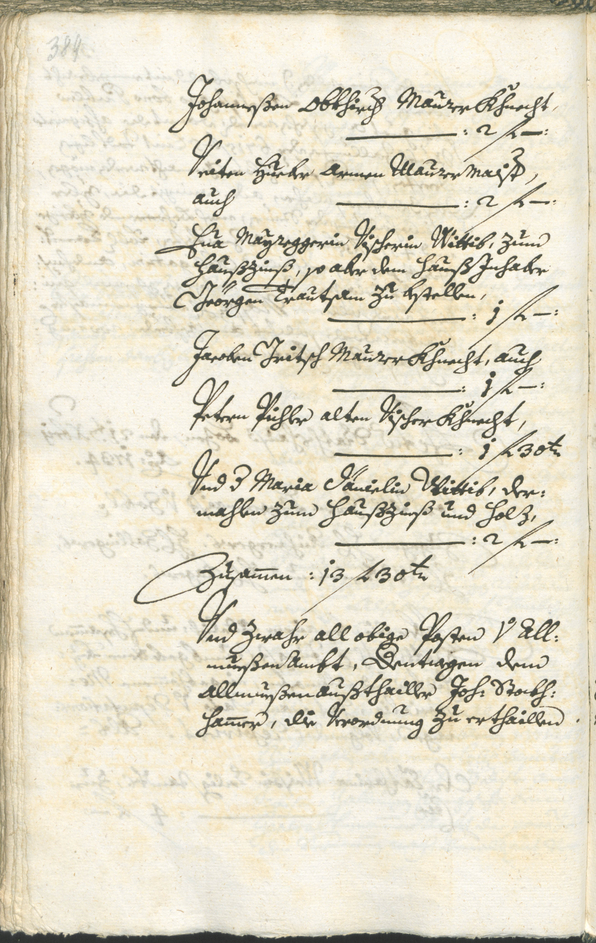 384
Johanneßen Obkhirch Maurer Khnecht,
: 2 f —:
Veiten Hueber Armen Maurer Maist,
auch : 2 f —:
Eva Mayreggerin Vischerin Wittib, zum
Haußzinß, so aber dem Hauß Inhaber
Geörgen Trautsam zu bestellen,
: 1 f —:
Jacoben Tritsch Maurer Khnecht, auch
: 1 f —:
Petern Pichler alten Vischer Khnecht,
: 1 f 30 kr
Und Maria Dänielin Wittib, der=
mahlen zum Haußzinß und Holz,
: 2 f —:
Zusammen : 13 f 30 kr
Und zwahr all obige Posten V All=
mueßen Ambt, Dentwegen dem
Allmueßen außthailler Joh:
hamer, die Verordnung zu erthaillen.